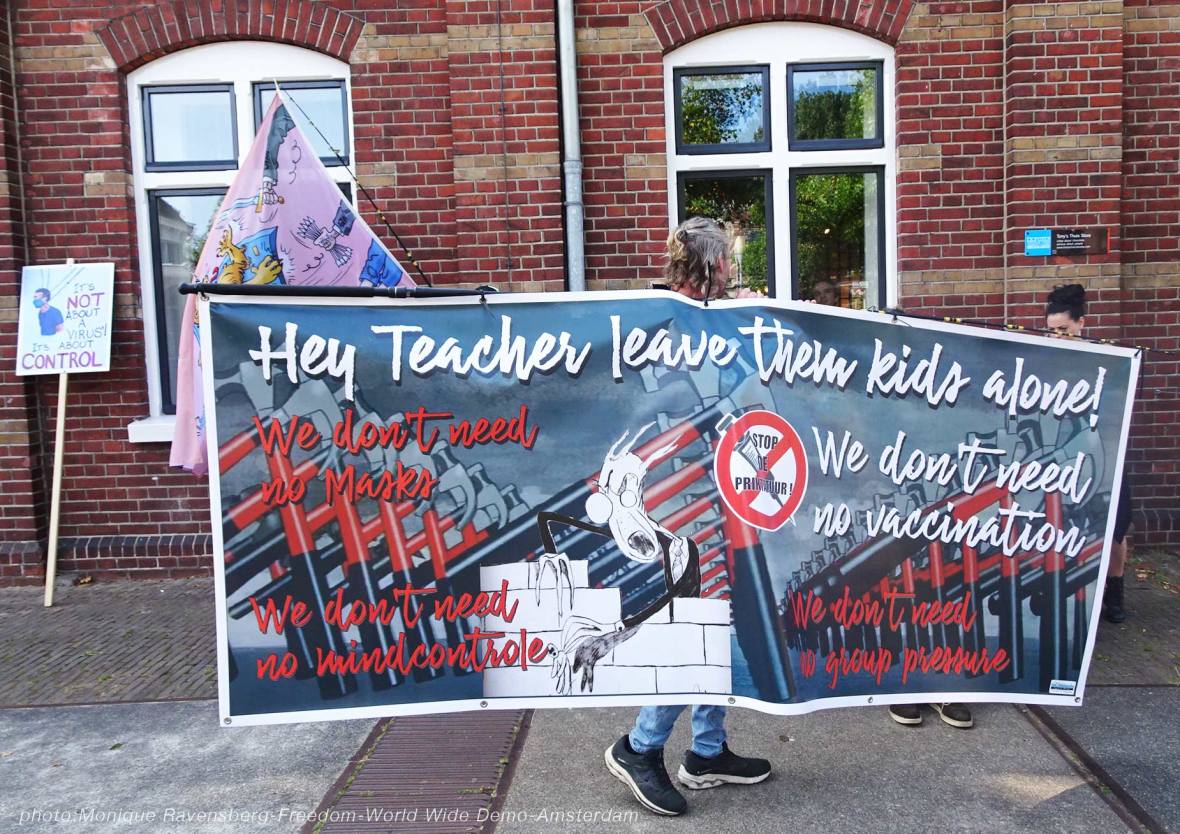 IT'S
NOT
ABOUT
A
VIRUS!
IT'S ABOUT
CONTROL
Hey Teacher leave them kids alone!
We don't need
no Masks
We don't need
no mindcontrole
STOP
DE
We don't need
no vaccination
We don't need
no group pressure
photo:Monique Ravensberg-Freedom-World Wide Demo-Amsterdam